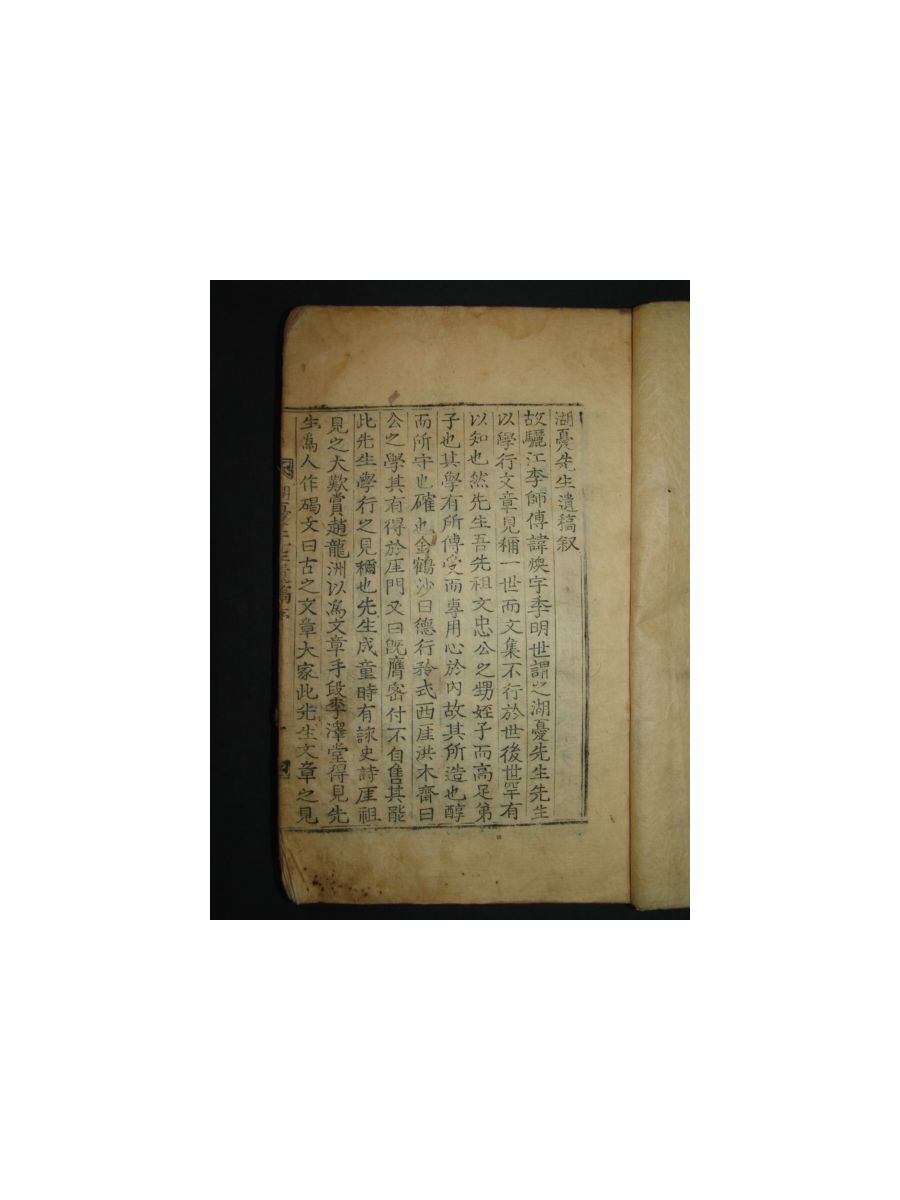 湖憂先生遺稿叙
故驪江李師傅諱煥字季明世謂之湖憂先生先生
以學行文章見稱一世而文集不行於世後世罕有
以知也然先生吾先祖文忠公之甥姪子而高足弟
子也其學有所傳受而專用心於內故其所造也醇
而所守也確也金鶴沙曰德行矜式西厓洪木齋曰
公之學其有得於厓門又曰旣膺密付不自售其能
此先生學行之見稱也先生成童時有詠史詩厓祖
見之大歎賞趙龍洲以爲文章手段李澤堂得見先
生爲人作碣文曰古之文章大家此先生文章之見